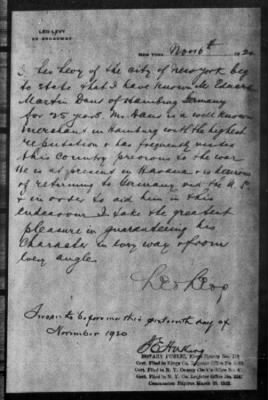 LEO LEVY
NEW YORK, Nov 16th 1920
I, Leo Levy of the city of New York beg
to state that I have known M Eduard
Martin Daus of Hamburg Germany
for 25 years. Mr. Daus is a well known
merchant in Hamburg with the highest
reputation & has frequently visited
this Country previous to the war
He is at present in Havana & is desirous
of returning to Germany via the U.S.
& in order to aid him in this
endeavour I take the greatest
pleasure in guaranteeing his
Character in every way & from
every angle.
Leo Levy
Sworn to before me this sixteenth day of
November 1920
NOTARY PUBLIC, Kings County No.
Cert. Filed in Kings Co. Register Office No.
Cert. Filed in N. Y. County Clerk's Office No.
Cert. Filed in N. Y. Co. Register Office No.
Commission Expires March 30, 1922